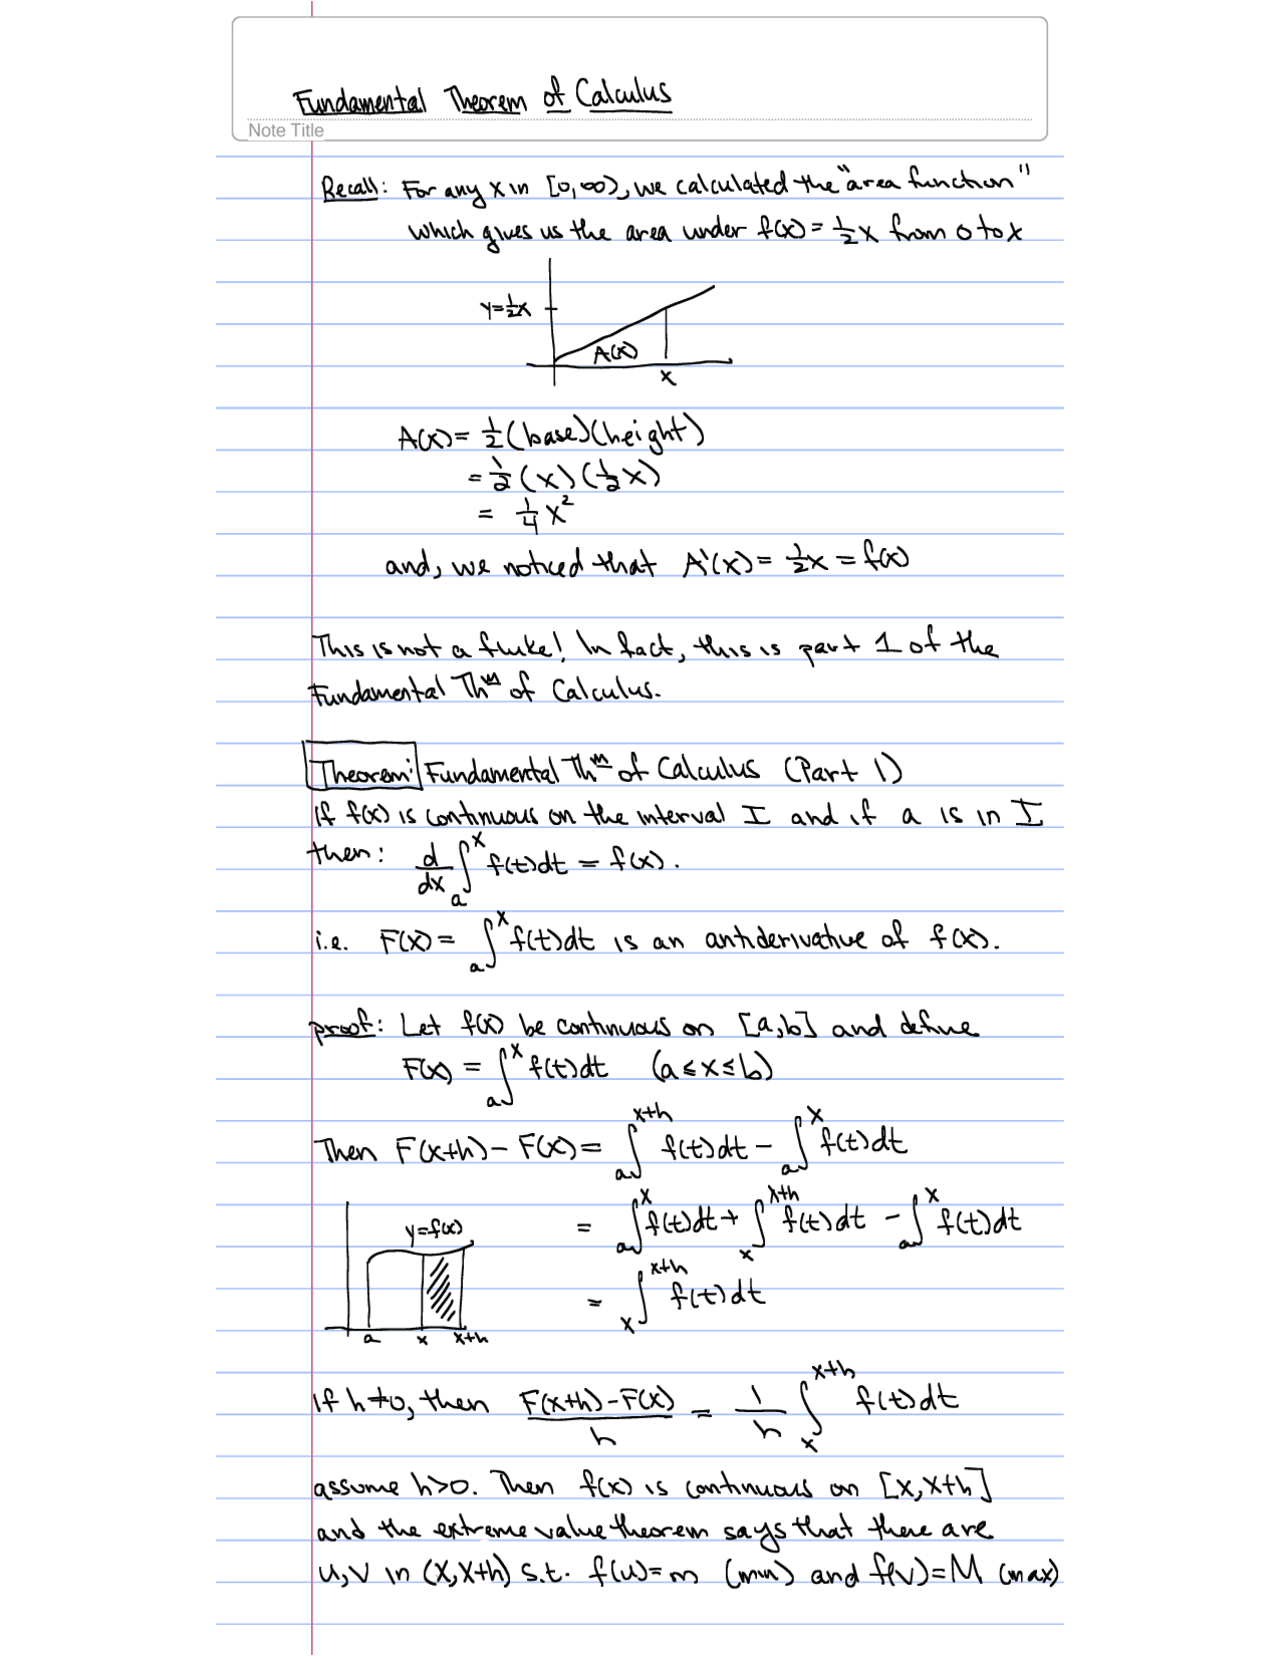 Fundamental Theorem of Calculus
Note Title
Recall: For any x in [0,∞), we calculated the "area function"
which gives us the area under f(x) = 1/2 x from 0 to x
y=1/2x
A(x)
x
A(x) = 1/2 (base)(height)
= 1/2 (x)(1/2 x)
= 1/4 x²
and, we noticed that A'(x) = 1/2 x = f(x)
This is not a fluke! In fact, this is part 1 of the
Fundamental Thᵐ of Calculus.
Theorem: Fundamental Thᵐ of Calculus (Part 1)
If f(x) is continuous on the interval I and if a is in I
then: d/dx ∫_a^x f(t)dt = f(x).
i.e. F(x) = ∫_a^x f(t)dt is an antiderivative of f(x).
proof: Let f(x) be continuous on [a,b] and define
F(x) = ∫_a^x f(t)dt (a≤x≤b)
Then F(x+h) - F(x) = ∫_a^{x+h} f(t)dt - ∫_a^x f(t)dt
= ∫_a^x f(t)dt + ∫_x^{x+h} f(t)dt - ∫_a^x f(t)dt
y=f(x)
= ∫_x^{x+h} f(t)dt
a x x+h
If h≠0, then (F(x+h)-F(x))/h = 1/h ∫_x^{x+h} f(t)dt
assume h>0. Then f(x) is continuous on [x,x+h]
and the extreme value theorem says that there are
u,v in (x,x+h) s.t. f(u)=m (min) and f(v)=M (max)